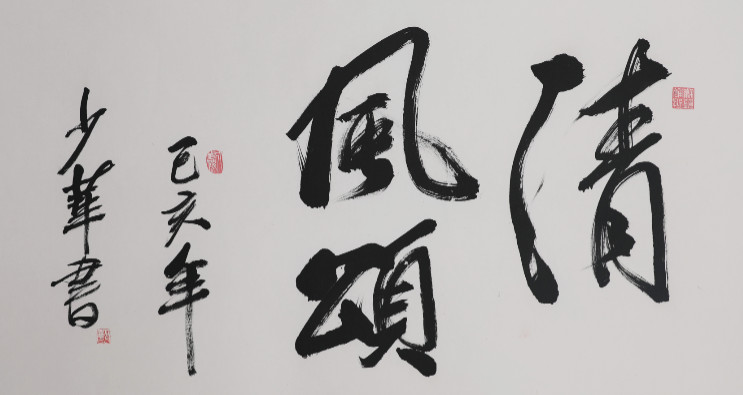 清
風頌
己亥年
少華書